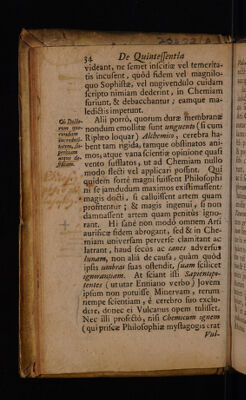 34 De Quintessentia
videant, ne semet inscitiæ vel temerita-
tis incusent, quòd fidem vel magnilo-
quo Sophistæ, vel nugivendulo cuidam
scripto nimiam dederint, in Chemiam
furiunt, & debacchantur; eamque ma-
ledictis impetunt.
Alii porrò, quorum duræ membranæ
nondum emollitæ sunt unguento (si cum
Riplæo loquar) Alchemico, cerebra ha-
bent tam rigida, tamque obstinatos ani-
mos, atque vana scientiæ opinione quasi
vento sufflatos, ut ad Chemiam nullo
modo flecti vel applicari possint. Qui
quidem fortè magni fuissent Philosophi
ni se jamdudum maximos existimassent;
magis docti, si calluissent artem quam
profitentur; & magis ingenui, si non
damnassent artem quam penitùs igno-
rant. Hi sanè non modò omnem Arti
aurificæ fidem abrogant, sed & in Che-
miam universam perverse clamitant ac
latrant, haud secùs ac canes adversus
lunam, non aliâ de causa, quàm quòd
ipsis umbras suas ostendit, suam scilicet
ignorantiam. At sciant isti Sapientipo-
tentes (ut utar Enniano verbo) Jovem
ipsum non potuisse Minervam, rerum
nempe scientiam, è cerebro suo exclu-
dere, donec ei Vulcanus opem tulisset.
Nec illi profectò, nisi Chemicum agnem
(qui priscæ Philosophiæ mystagogus erat
Vul-